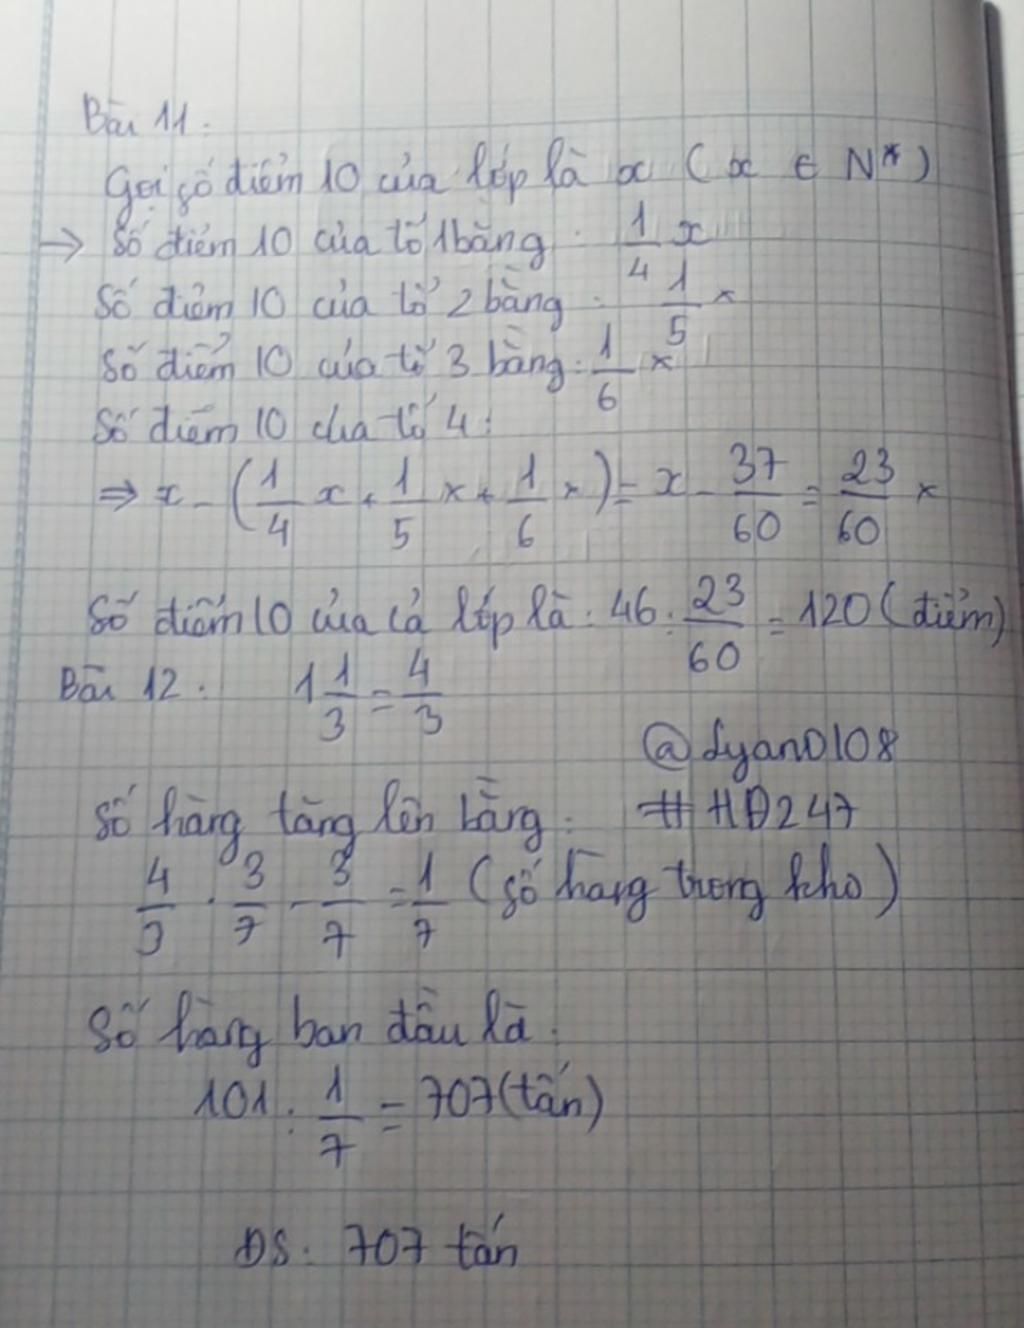 Bài 11:
Gọi số điểm 10 của lớp là x (x ∈ N*)
→ Số điểm 10 của tổ 1 bằng: 1/4 x
Số điểm 10 của tổ 2 bằng: 1/5 x
Số điểm 10 của tổ 3 bằng: 1/6 x
Số điểm 10 của tổ 4:
⇒ x - (1/4 x + 1/5 x + 1/6 x) = x - 37/60 = 23/60 x
Số điểm 10 của cả lớp là: 46 : 23/60 = 120 (điểm)
Bài 12: 1 1/3 = 4/3
@Lyan0108
Số hàng tăng lên bằng: #HĐ247
4/3 . 3/7 - 3/7 = 1/7 (số hàng trong kho)
Số hàng ban đầu là:
101 : 1/7 = 707 (tấn)
ĐS: 707 tấn